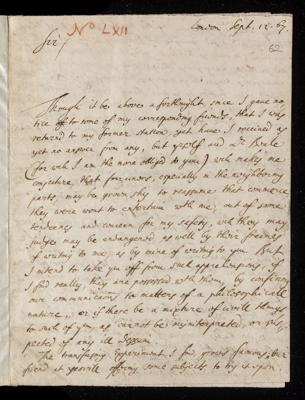 No LXII
London Sept. 12. 67.
62
Sir,
Though it be above a fortnight, since I gave no-
tice of to some of my corresponding friends, that I was
returned to my former station, yet have I received as
yet no answer from any, but yourself and Mr Beale
(for wch I am the more obliged to you,) wch makes me
conjecture, that foreiners, especially in the neighboring
parts, may be grown shy to reassume that commerce
they were wont to entertain with me, out of some
tenderness and concern for my safety, wch they may
judge may be endangered as well by their freeness
of writing to me, as by mine of writing to you. But,
I intend to take you off from such apprehensions, if
I find really they are possessed with them, by confining
our communications to matters of a philosophicall
nature, or, if there be a mixture of civill things
to such of ym, as cannot be misinterpreted, or sus-
pected of any ill design.
The transfusing Experiment, I find, grows famous, our
friend at yeovill offering some subjects to try it upon.